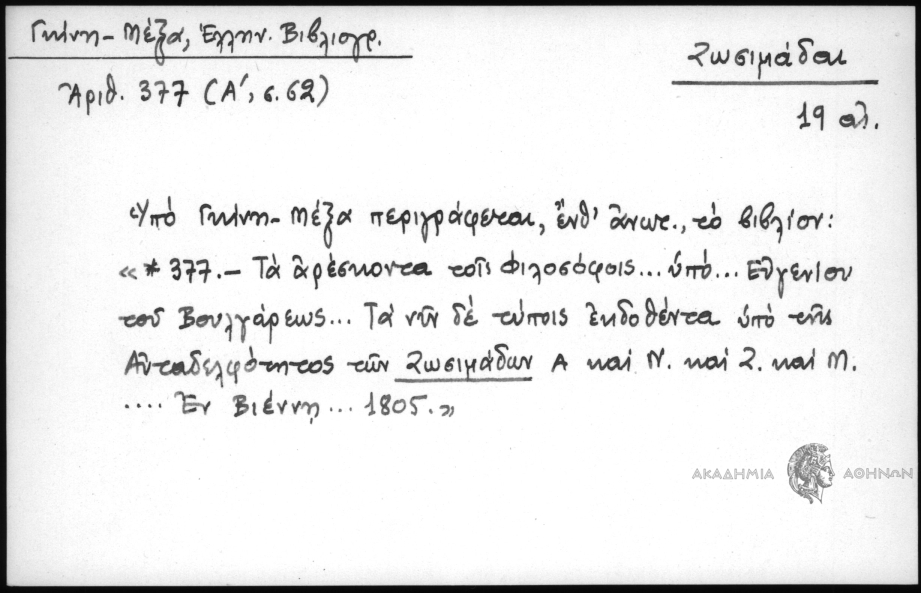 Γκίνη - Μέξα, Ἑλλην. Βιβλιογρ.
Ἀριθ. 377 (Α΄, σ. 62)
Ζωσιμάδαι
19 αἰ.
Ὑπό Γκίνη - Μέξα περιγράφεται, ἔνθ' ἄνωτ., τό βιβλίον:
«*377.— Τὰ ἀρέσκοντα τοῖς Φιλοσόφοις... ὑπό... Εὐγενίου
τοῦ Βουλγάρεως... Τά νῦν δέ τύποις ἐκδοθέντα ὑπό τῆς
Αὐταδελφότητος τῶν Ζωσιμάδων Α καί Ν. καί Ζ. καί Μ.
.... Ἐν Βιέννῃ... 1805.»
ΑΚΑΔΗΜΙΑ ΑΘΗΝΩΝ